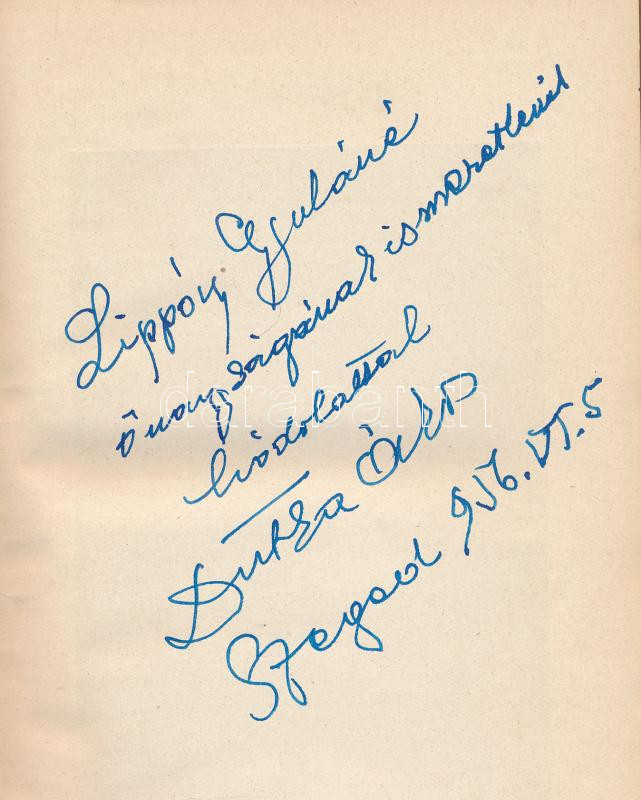 Lippóy Gyuláné
őnagyságának ismeretlenül
hódolattal
Dutka Ákos
Szeged 956. VI. 5
darabanth